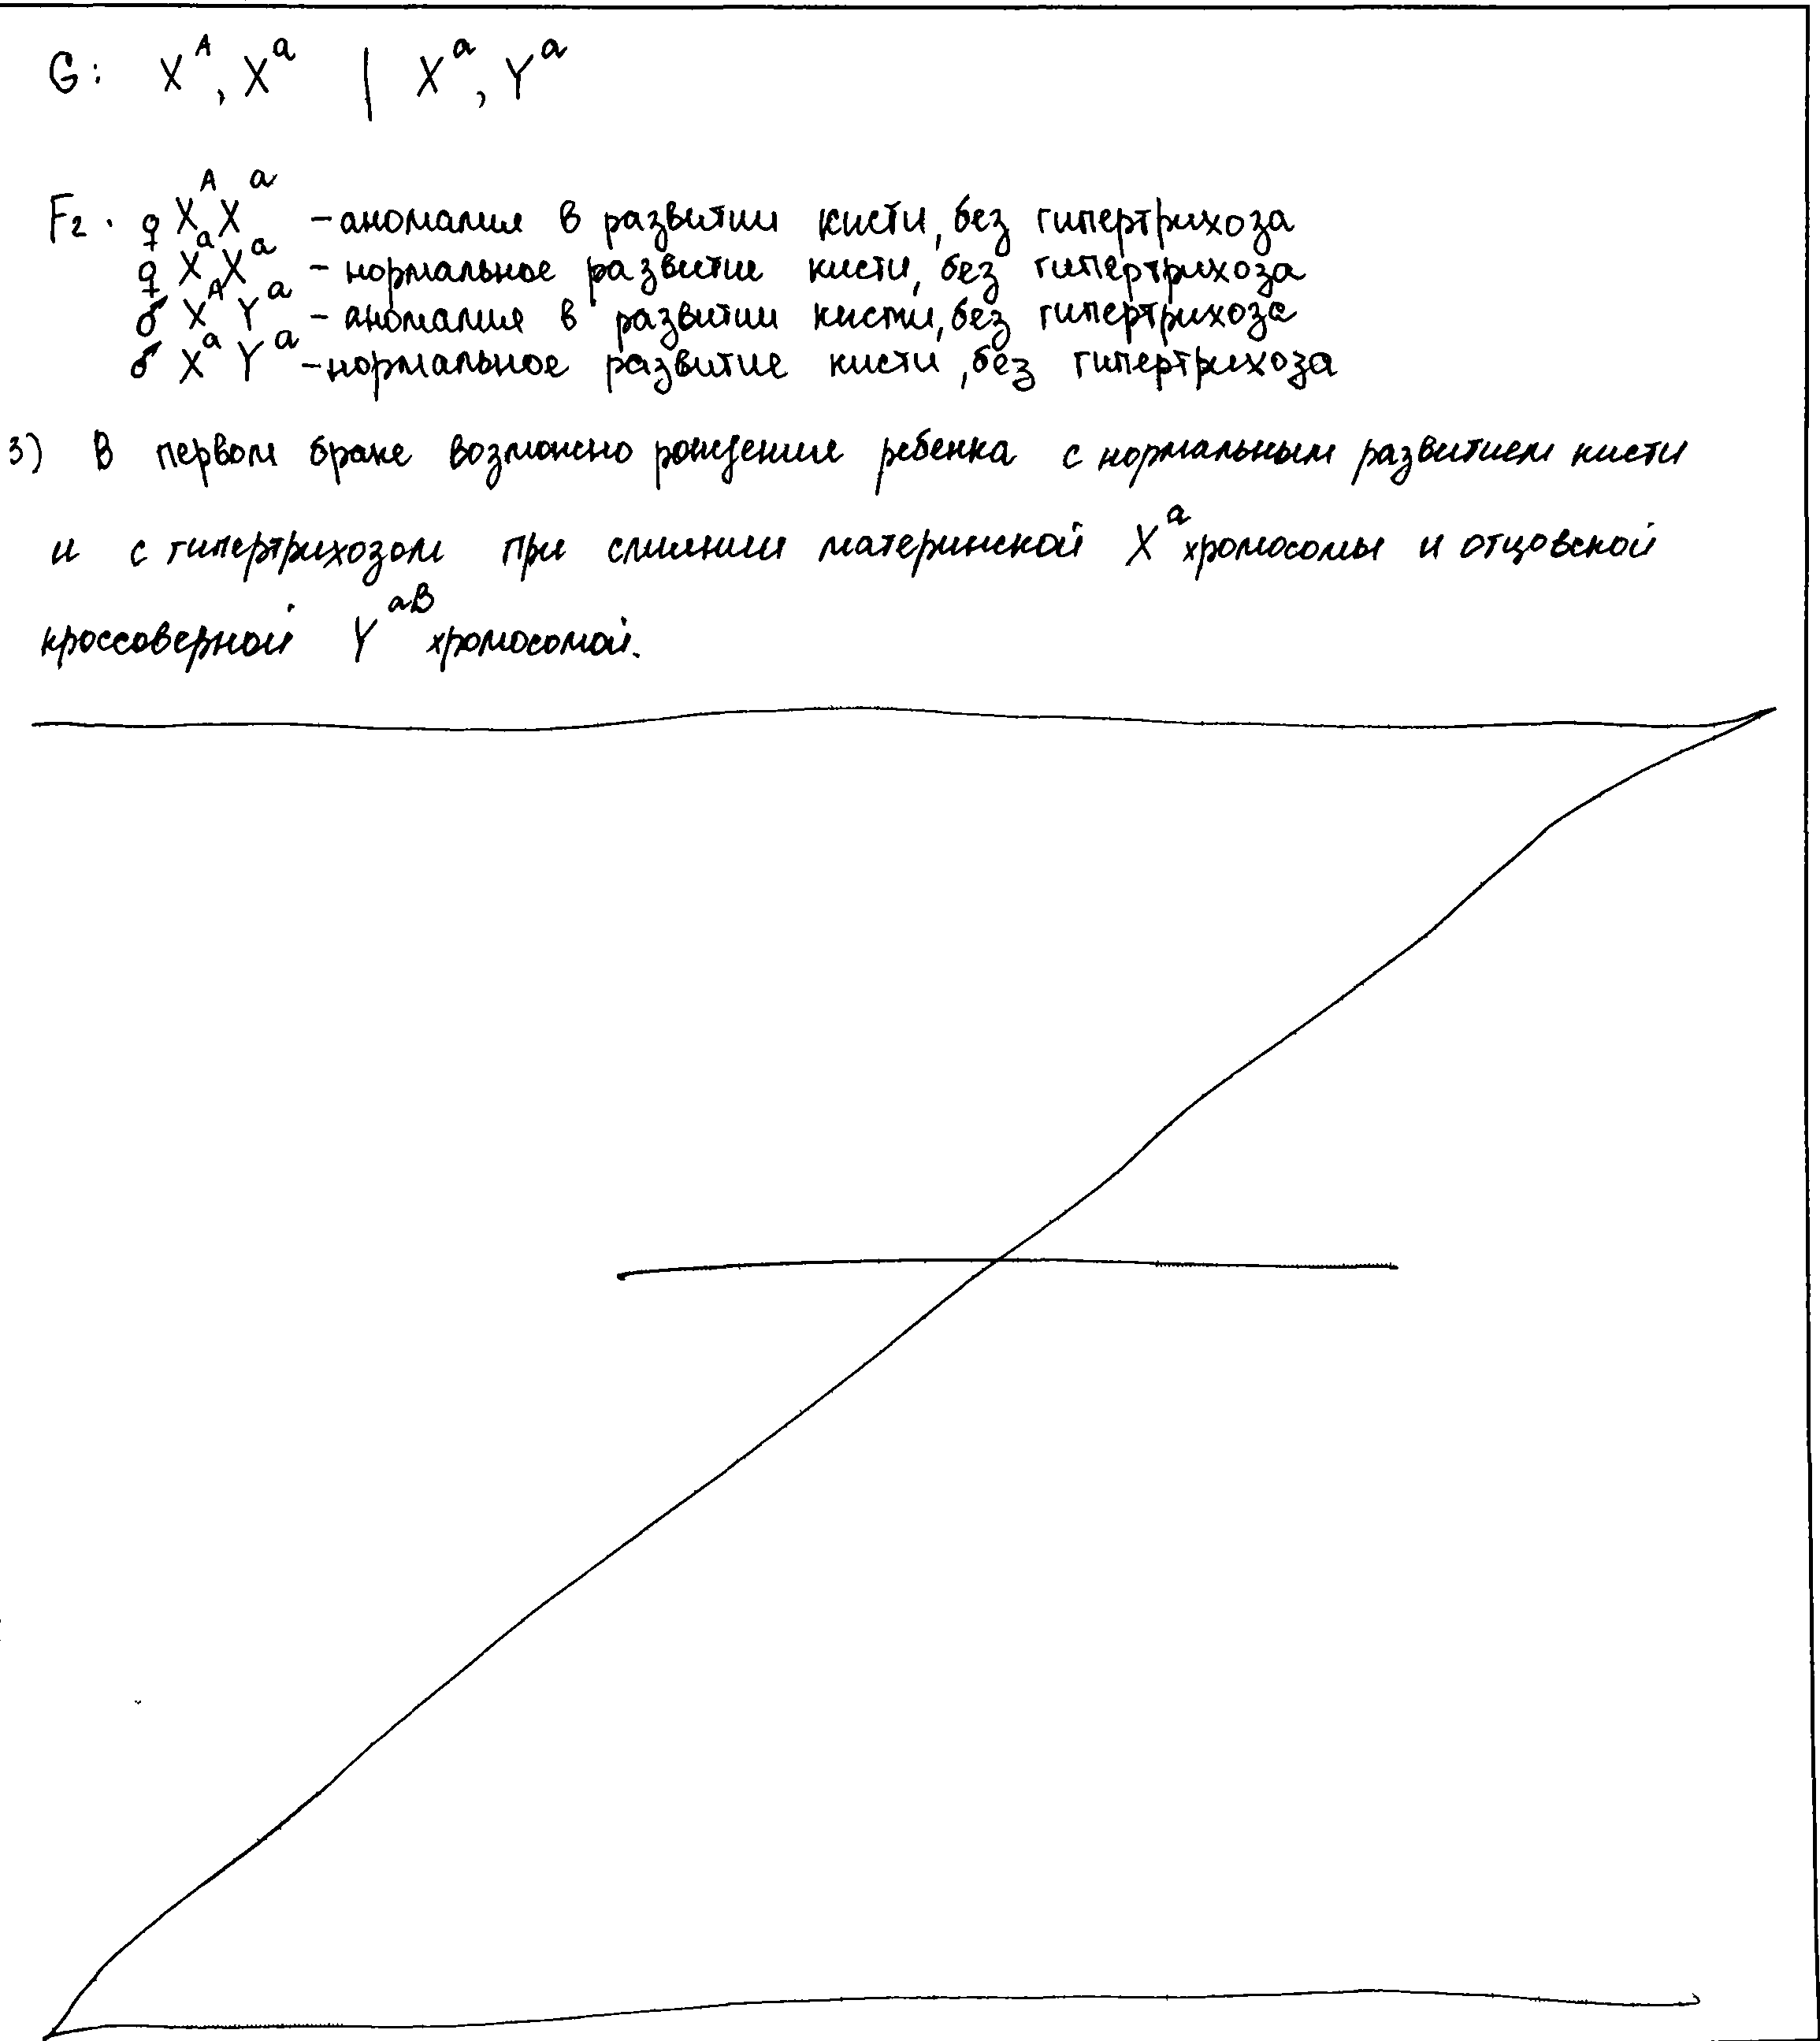 G: X^A, X^a | X^a, Y^a
F2. ♀ X^A X^a – аномалия в развитии кисти, без гипертрихоза
♀ X^a X^a – нормальное развитие кисти, без гипертрихоза
♂ X^A Y^a – аномалия в развитии кисти, без гипертрихоза
♂ X^a Y^a – нормальное развитие кисти, без гипертрихоза
3) В первом браке возможно рождение ребенка с нормальным развитием кисти
и с гипертрихозом при слиянии материнской X^a хромосомы и отцовской
кроссоверной Y^aB хромосомой.